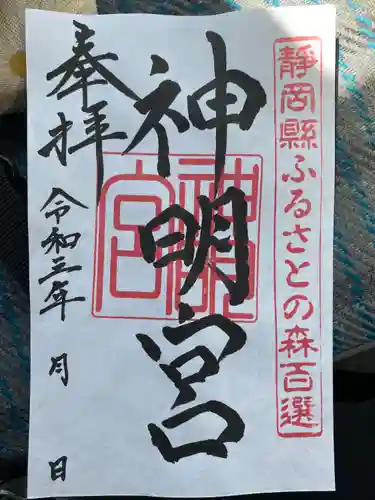 静岡縣ふるさとの森百選
神明宮
奉拝
令和三年 月 日